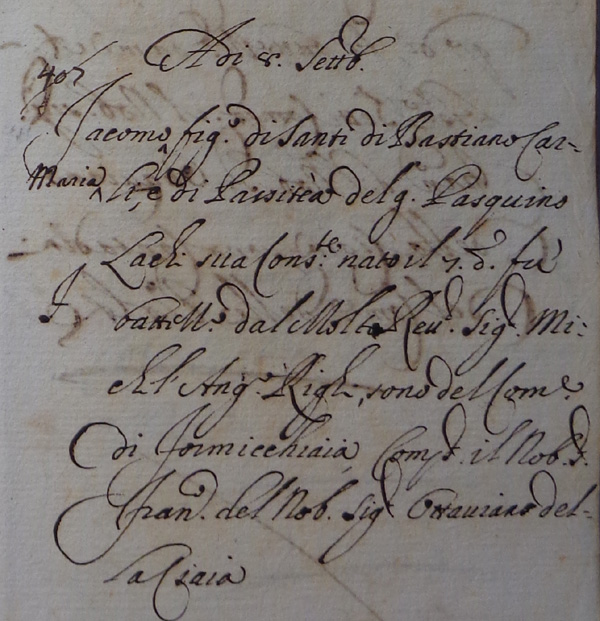 407
A di 8. Settb.
Jacomo figo. di Santi di Bastiano Car-
Maria
li, e di Parsitèa del q. Pasquino
Lachi sua Conste. nato il 7. do. fu
battello. dal Molto Revdo. Sigr. Mi-
chl' Ango. Righi, sono del Come.
di Formicchiaia Compe. il Nob. Sr.
Frano. del Nob. Sigr. Ottaviano del-
la Ciaia